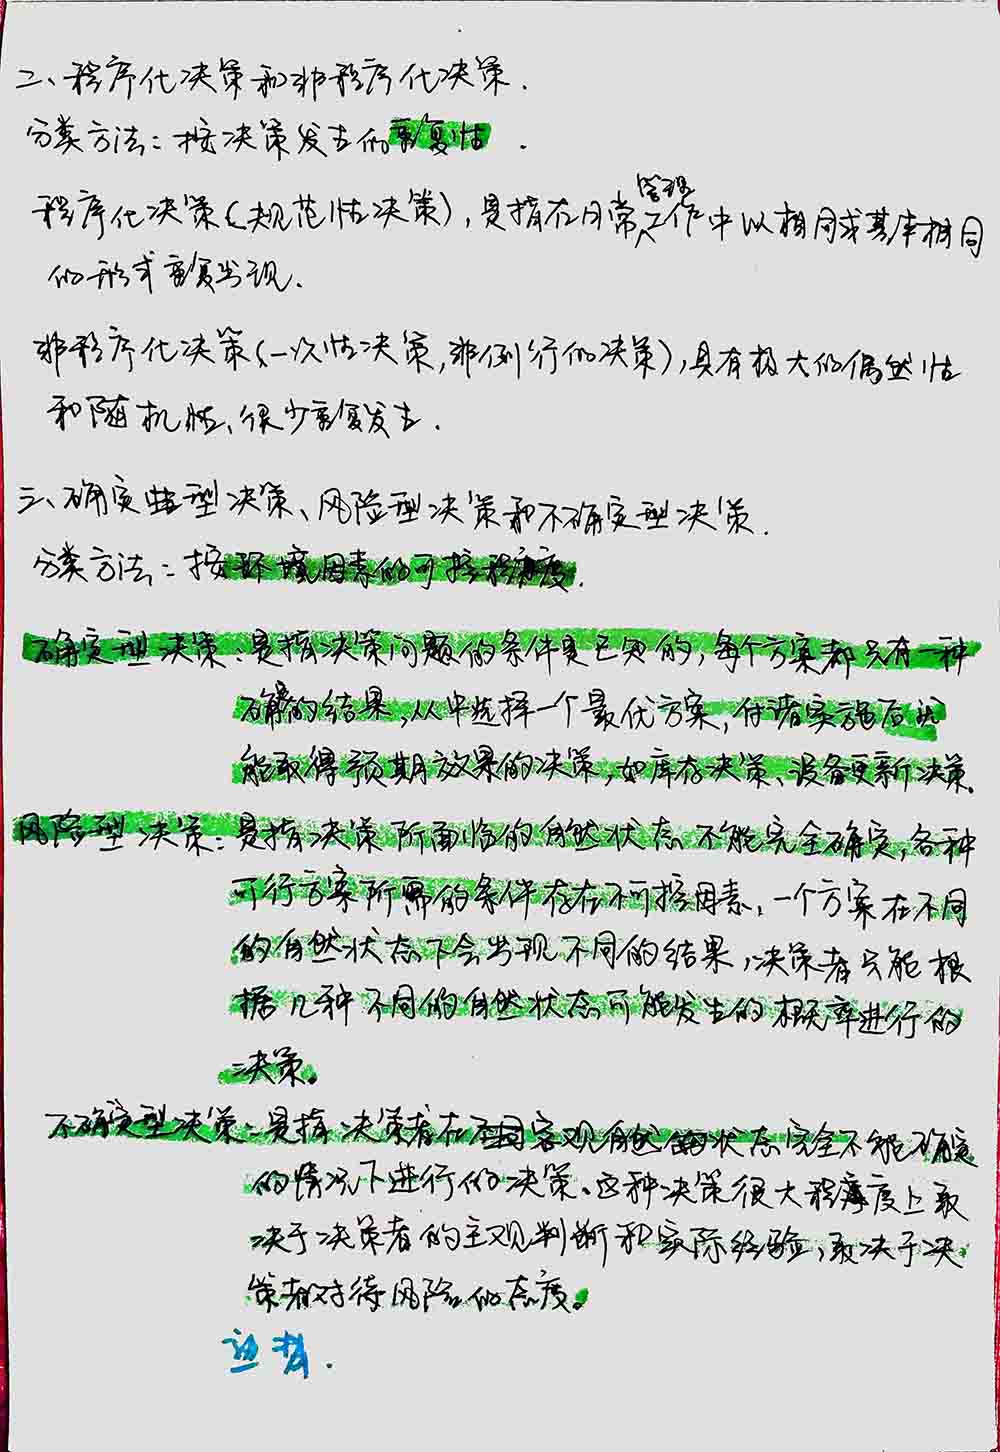 二、程序化决策和非程序化决策.
分类方法：按决策发生的重复性.
程序化决策(规范性决策)，是指在日常管理工作中以相同或基本相同
的形式重复出现.
非程序化决策(一次性决策,非例行的决策),具有极大的偶然性
和随机性、很少重复发生.
三、确定型决策、风险型决策和不确定型决策.
分类方法：按环境因素的可控程度.
确定型决策：是指决策问题的条件是已知的,每个方案都只有一种
确定的结果,从中选择一个最优方案,付诸实施后就
能取得预期效果的决策,如库存决策、设备更新决策.
风险型决策：是指决策所面临的自然状态不能完全确定,各种
可行方案所需的条件存在不可控因素,一个方案在不同
的自然状态下会出现不同的结果,决策者只能根
据几种不同的自然状态可能发生的概率进行的
决策。
不确定型决策：是指决策者在客观自然状态完全不能确定
的情况下进行的决策。这种决策很大程度上取
决于决策者的主观判断和实际经验,取决于决
策者对待风险的态度。